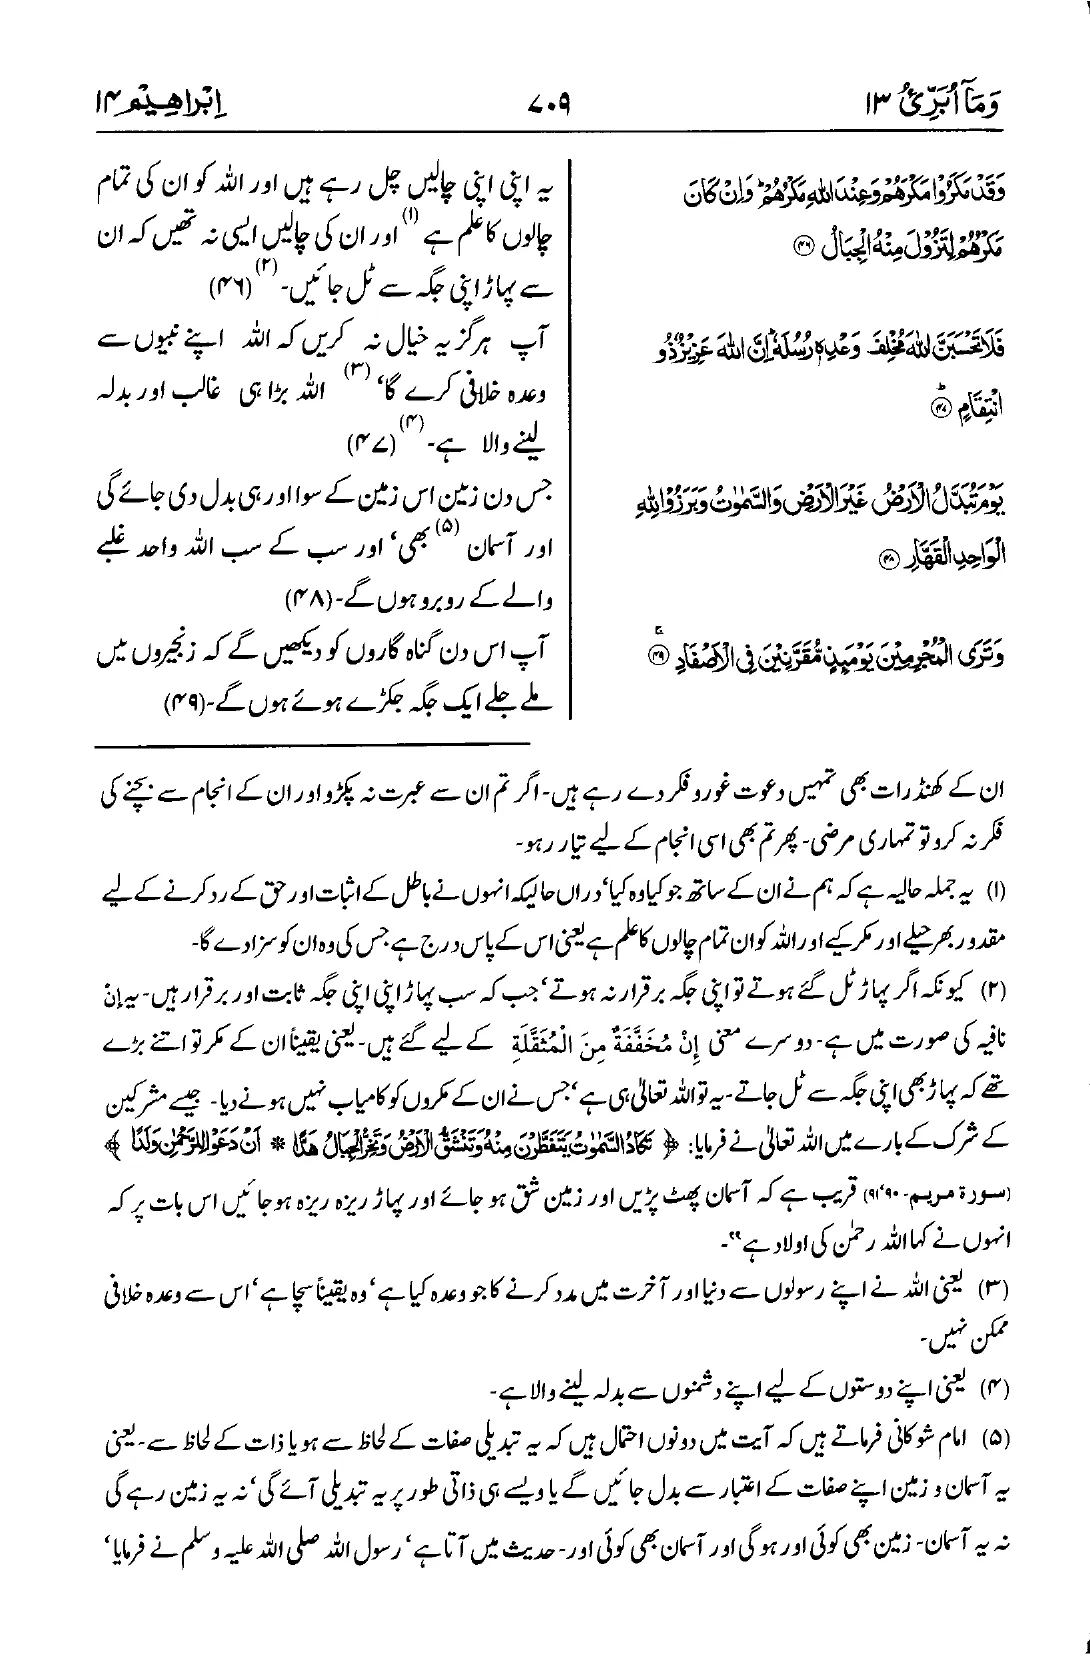 وَمَآ أُبَرِّئُ ١٣
٧٠٩
اِبْرَاهِیْم ١٤
وَقَدْ مَكَرُوْا مَكْرَهُمْ وَعِنْدَ اللّٰهِ مَكْرُهُمْ ؕ وَاِنْ كَانَ
مَكْرُهُمْ لِتَزُوْلَ مِنْهُ الْجِبَالُ ۝۴۶
فَلَا تَحْسَبَنَّ اللّٰهَ مُخْلِفَ وَعْدِهٖ رُسُلَهٗ ؕ اِنَّ اللّٰهَ عَزِیْزٌ ذُو
انْتِقَامٍ ۝۴۷ؕ
یَوْمَ تُبَدَّلُ الْاَرْضُ غَیْرَ الْاَرْضِ وَالسَّمٰوٰتُ وَبَرَزُوْا لِلّٰهِ
الْوَاحِدِ الْقَهَّارِ ۝۴۸
وَتَرَی الْمُجْرِمِیْنَ یَوْمَىِٕذٍ مُّقَرَّنِیْنَ فِی الْاَصْفَادِ ۝۴۹ۚ
یہ اپنی اپنی چالیں چل رہے ہیں اور اللہ کو ان کی تمام
چالوں کا علم ہے (۱) اور ان کی چالیں ایسی نہ تھیں کہ ان
سے پہاڑ اپنی جگہ سے ٹل جائیں۔(۲) (۴۶)
آپ ہرگز یہ خیال نہ کریں کہ اللہ اپنے نبیوں سے
وعدہ خلافی کرے گا،(۳) اللہ بڑا ہی غالب اور بدلہ
لینے والا ہے۔(۴) (۴۷)
جس دن زمین اس زمین کے سوا اور ہی بدل دی جائے گی
اور آسمان (۵) بھی، اور سب کے سب اللہ واحد غلبے
والے کے روبرو ہوں گے۔(۴۸)
آپ اس دن گناہ گاروں کو دیکھیں گے کہ زنجیروں میں
ملے جلے ایک جگہ جکڑے ہوئے ہوں گے۔(۴۹)
ان کے کھنڈرات بھی تمہیں دعوت غور و فکر دے رہے ہیں۔ اگر تم ان سے عبرت نہ پکڑو اور ان کے انجام سے بچنے کی
فکر نہ کرو تو تمہاری مرضی۔ پھر تم بھی اسی انجام کے لیے تیار رہو۔
(۱) یہ جملہ حالیہ ہے کہ ہم نے ان کے ساتھ جو کیا وہ کیا، دراں حالیکہ انہوں نے باطل کے اثبات اور حق کے رد کرنے کے لیے
مقدور بھر حیلے اور مکر کیے اور اللہ کو ان تمام چالوں کا علم ہے یعنی اس کے پاس درج ہے جس کی وہ ان کو سزا دے گا۔
(۲) کیونکہ اگر پہاڑ ٹل گئے ہوتے تو اپنی جگہ برقرار نہ ہوتے، جب کہ سب پہاڑ اپنی اپنی جگہ ثابت اور برقرار ہیں۔ یہ إنْ
نافیہ کی صورت میں ہے۔ دوسرے معنی إِنْ مُخَفَّفَةٌ مِنَ الْمُثَقَّلَةِ کے لیے گئے ہیں۔ یعنی یقیناً ان کے مکر تو اتنے بڑے
تھے کہ پہاڑ بھی اپنی جگہ سے ٹل جاتے۔ یہ تو اللہ تعالیٰ ہی ہے، جس نے ان کے مکروں کو کامیاب نہیں ہونے دیا۔ جیسے مشرکین
کے شرک کے بارے میں اللہ تعالیٰ نے فرمایا: ﴿ تَكَادُ السَّمٰوٰتُ یَتَفَطَّرْنَ مِنْهُ وَتَنْشَقُّ الْاَرْضُ وَتَخِرُّ الْجِبَالُ هَدًّا * اَنْ دَعَوْا لِلرَّحْمٰنِ وَلَدًا ﴾
(سورة مريم۔ ۹۰،۹۱) قریب ہے کہ آسمان پھٹ پڑیں اور زمین شق ہو جائے اور پہاڑ ریزہ ریزہ ہو جائیں اس بات پر کہ
انہوں نے کہا اللہ رحمٰن کی اولاد ہے"۔
(۳) یعنی اللہ نے اپنے رسولوں سے دنیا اور آخرت میں مدد کرنے کا جو وعدہ کیا ہے، وہ یقیناً سچا ہے، اس سے وعدہ خلافی
ممکن نہیں۔
(۴) یعنی اپنے دوستوں کے لیے اپنے دشمنوں سے بدلہ لینے والا ہے۔
(۵) امام شوکانی فرماتے ہیں کہ آیت میں دونوں احتمال ہیں کہ یہ تبدیلی صفات کے لحاظ سے ہو یا ذات کے لحاظ سے۔ یعنی
یہ آسمان و زمین اپنے صفات کے اعتبار سے بدل جائیں گے یا ویسے ہی ذاتی طور پر یہ تبدیلی آئے گی، نہ یہ زمین رہے گی
نہ یہ آسمان۔ زمین بھی کوئی اور ہوگی اور آسمان بھی کوئی اور۔ حدیث میں آتا ہے، رسول اللہ صلی اللہ علیہ وسلم نے فرمایا،